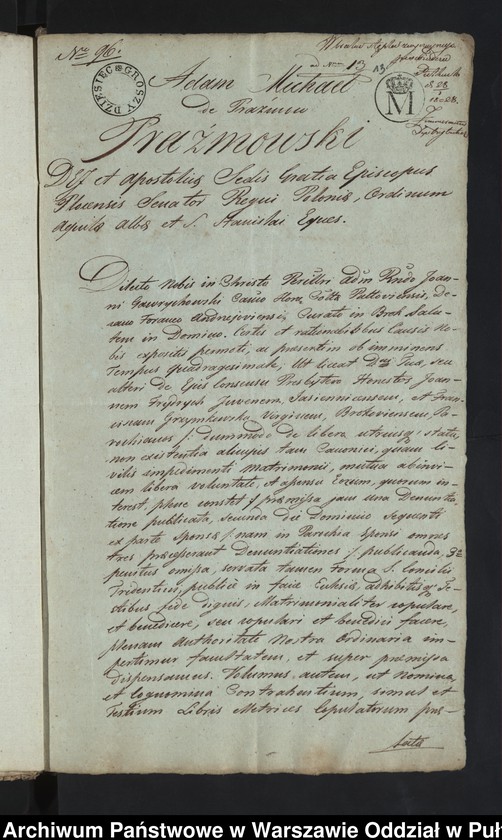 Nro 96.
DZIESIEC GROSZY
M
13
Adam Michael
de Prażmow
Prażmowski
DEJ et Apostolicæ Sedis Gratia Episcopus
Plocensis Senator Regni Poloniæ, Ordinum
Aquilæ Albæ et S. Stanislai Eques.
Dilecto Nobis in Christo Joan-
ni Gawrychowski Pultoviensis, De-
cano Foraneo Andrejeviensi, Curato in Brok Salu-
tem in Domino. Certis et rationabilibus Causis No-
bis expositis permoti, ac præsertim ob imminens
Tempus Quadragesimale; Ut liceat Tuæ, seu
alteri de Ejus Consensu Presbytero Honestos Joan-
nem Frydrych Juvenem, et Fran-
ciscam Grzymkowska Virginem, Brokoviensem, Pa-
rochianos /: dummodo de libero utriusque statu,
non existentia alicujus tam Canonici, quam Ci-
vilis impedimenti matrimonii, mutua abinvi-
cem libera voluntate, et Eorum, quorum in-
terest plene constet :/ præmissa jam una Denuntia-
tione publicata, secunda die Dominico sequenti
ex parte Sponsæ /: nam in Parochia Sponsi omnes
tres præcesserunt Denuntiationes :/ publicanda, 3tia
penitus omissa, servata tamen Forma S. Concilii
Tridentini, publice in facie Ecclesiæ, adhibitisque Te-
stibus fide dignis, Matrimonialiter copulare,
et benedicere, seu copulari et benedici facere,
plenam Authoritate Nostra Ordinaria im-
pertimur facultatem, et super præmissa
dispensamus. Volumus autem, ut Nomina,
et Cognomina Contrahentium, simul et
Testium Libris Metrices Copulatorum præ-
Archiwum Państwowe w Warszawie Oddział w Puł